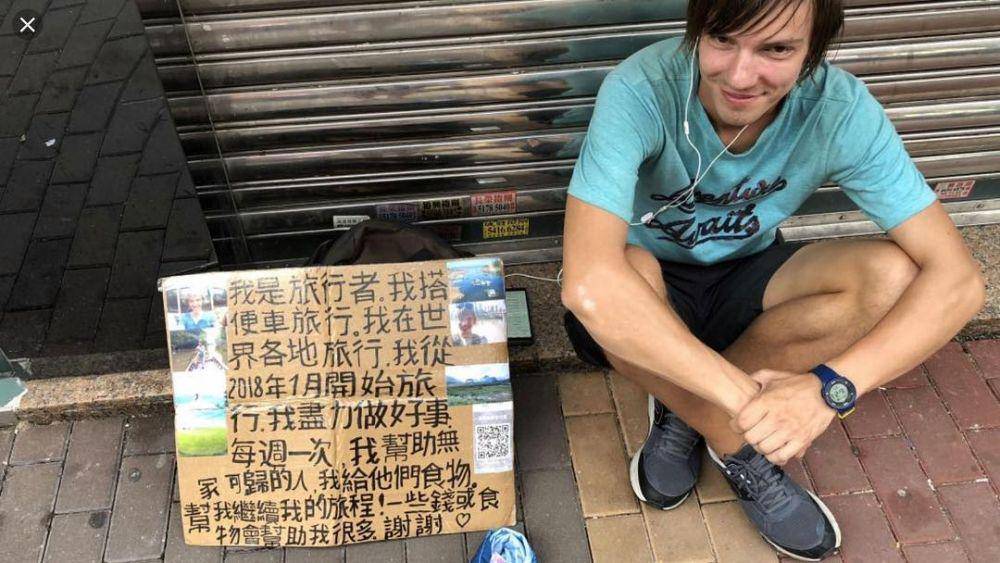 我是旅行者。我搭
便車旅行。我在世
界各地旅行。我從
2018年1月開始旅
行。我盡力做好事
每週一次 我幫助無
家可歸的人,我給他們食物。
幫我繼續我的旅程!一些錢或食
物會幫助我很多。謝謝 ♡
Adventure
Awaits
5178 5040
5416 6284